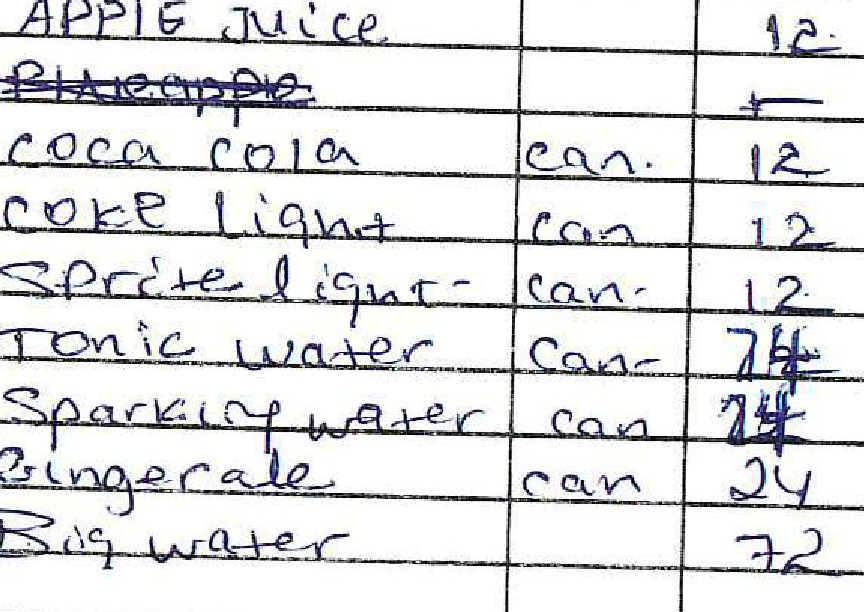 APPlE Juice 12.
Pineapple —
coca cola can. 12
coke light can 12
Sprite light- can- 12
Tonic water can- 24
Sparking water can 24
Gingerale can 24
Big water 72